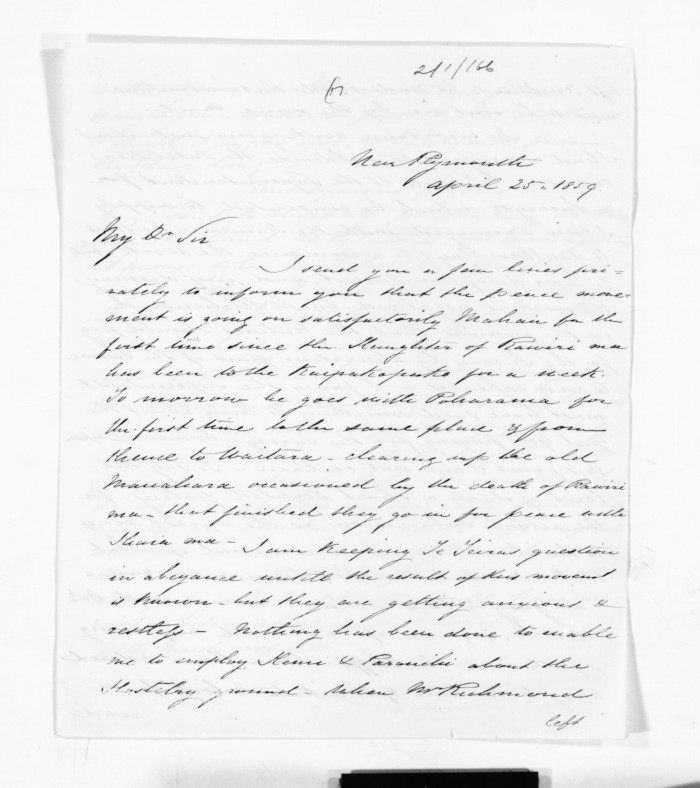 21/1/166
New Plymouth
April 25. 1859.
My Dr Sir
I send you a few lines pri-
vately to inform you that the peace move-
ment is going on satisfactorily Mahau for the
first time since the slaughter of Rawiri ma
has been to the Kaipakopako for a week.
To morrow he goes with Poharama for
the first time to the same place & from
thence to Waitara - clearing up the old
occasioned by the death of Rawiri
ma - that finished they go in for peace with
Ihaia ma - I am keeping Te Teiras question
in abeyance untill the result of this movemt
is known - but they are getting anxious &
restless - Nothing has been done to enable
me to employ & about the
ground - when Mr Richmond
left